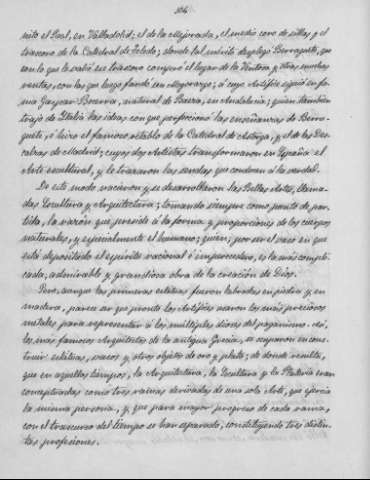 nito el Real, en Valladolid; el de la Mejorada, el medio coro de sillas y el
trascoro de la Catedral de Toledo; donde tal mérito desplegó Berruguete, que
con lo que le valió su trascoro compró el lugar de la Ventosa y otras muchas
rentas, con las que luego fundó un Mayorazgo; á cuyo Artífice siguió en fa-
ma Gaspar Becerra, natural de Baeza, en Andalucia; quien tambien
trajo de Italia las ideas con que perfeccionó las enseñanzas de Berru-
guete, é hizo el famoso retablo de la Catedral de Astorga, y el de las Des-
calzas de Madrid; cuyos dos Artistas transformaron en España el
Arte escultural, y le trazaron las sendas que conducen á la verdad.
De este modo nacieron y se desarrollaron las Bellas Artes, llama-
das Escultura y Arquitectura; tomando siempre como punto de par-
tida, la razón que preside á la forma y proporciones de los cuerpos
naturales, y especialmente el humano; quien, por ser el vaso en que
está depositado el espíritu racional é imperecedero, es la más compli-
cada, admirable y grandiosa obra de la creación de Dios.
Pero, aunque las primeras estátuas fueron labradas en piedra y en
madera, parece ser que pronto los Artífices usaron los más preciosos
metales para representar á los múltiples dioses del paganismo. Así,
los más famosos Arquitectos de la antigua Grecia, se ocuparon en cons-
truir estátuas, vasos y otros objetos de oro y plata; de donde resulta,
que en aquellos tiempos, la Arquitectura, la Escultura y la Platería eran
conceptuadas como tres ramas derivadas de una sola Arte, que ejercia
la misma persona, y que para mayor progreso de cada rama,
con el trascurso del tiempo se han separado, constituyendo tres distin-
tas profesiones.